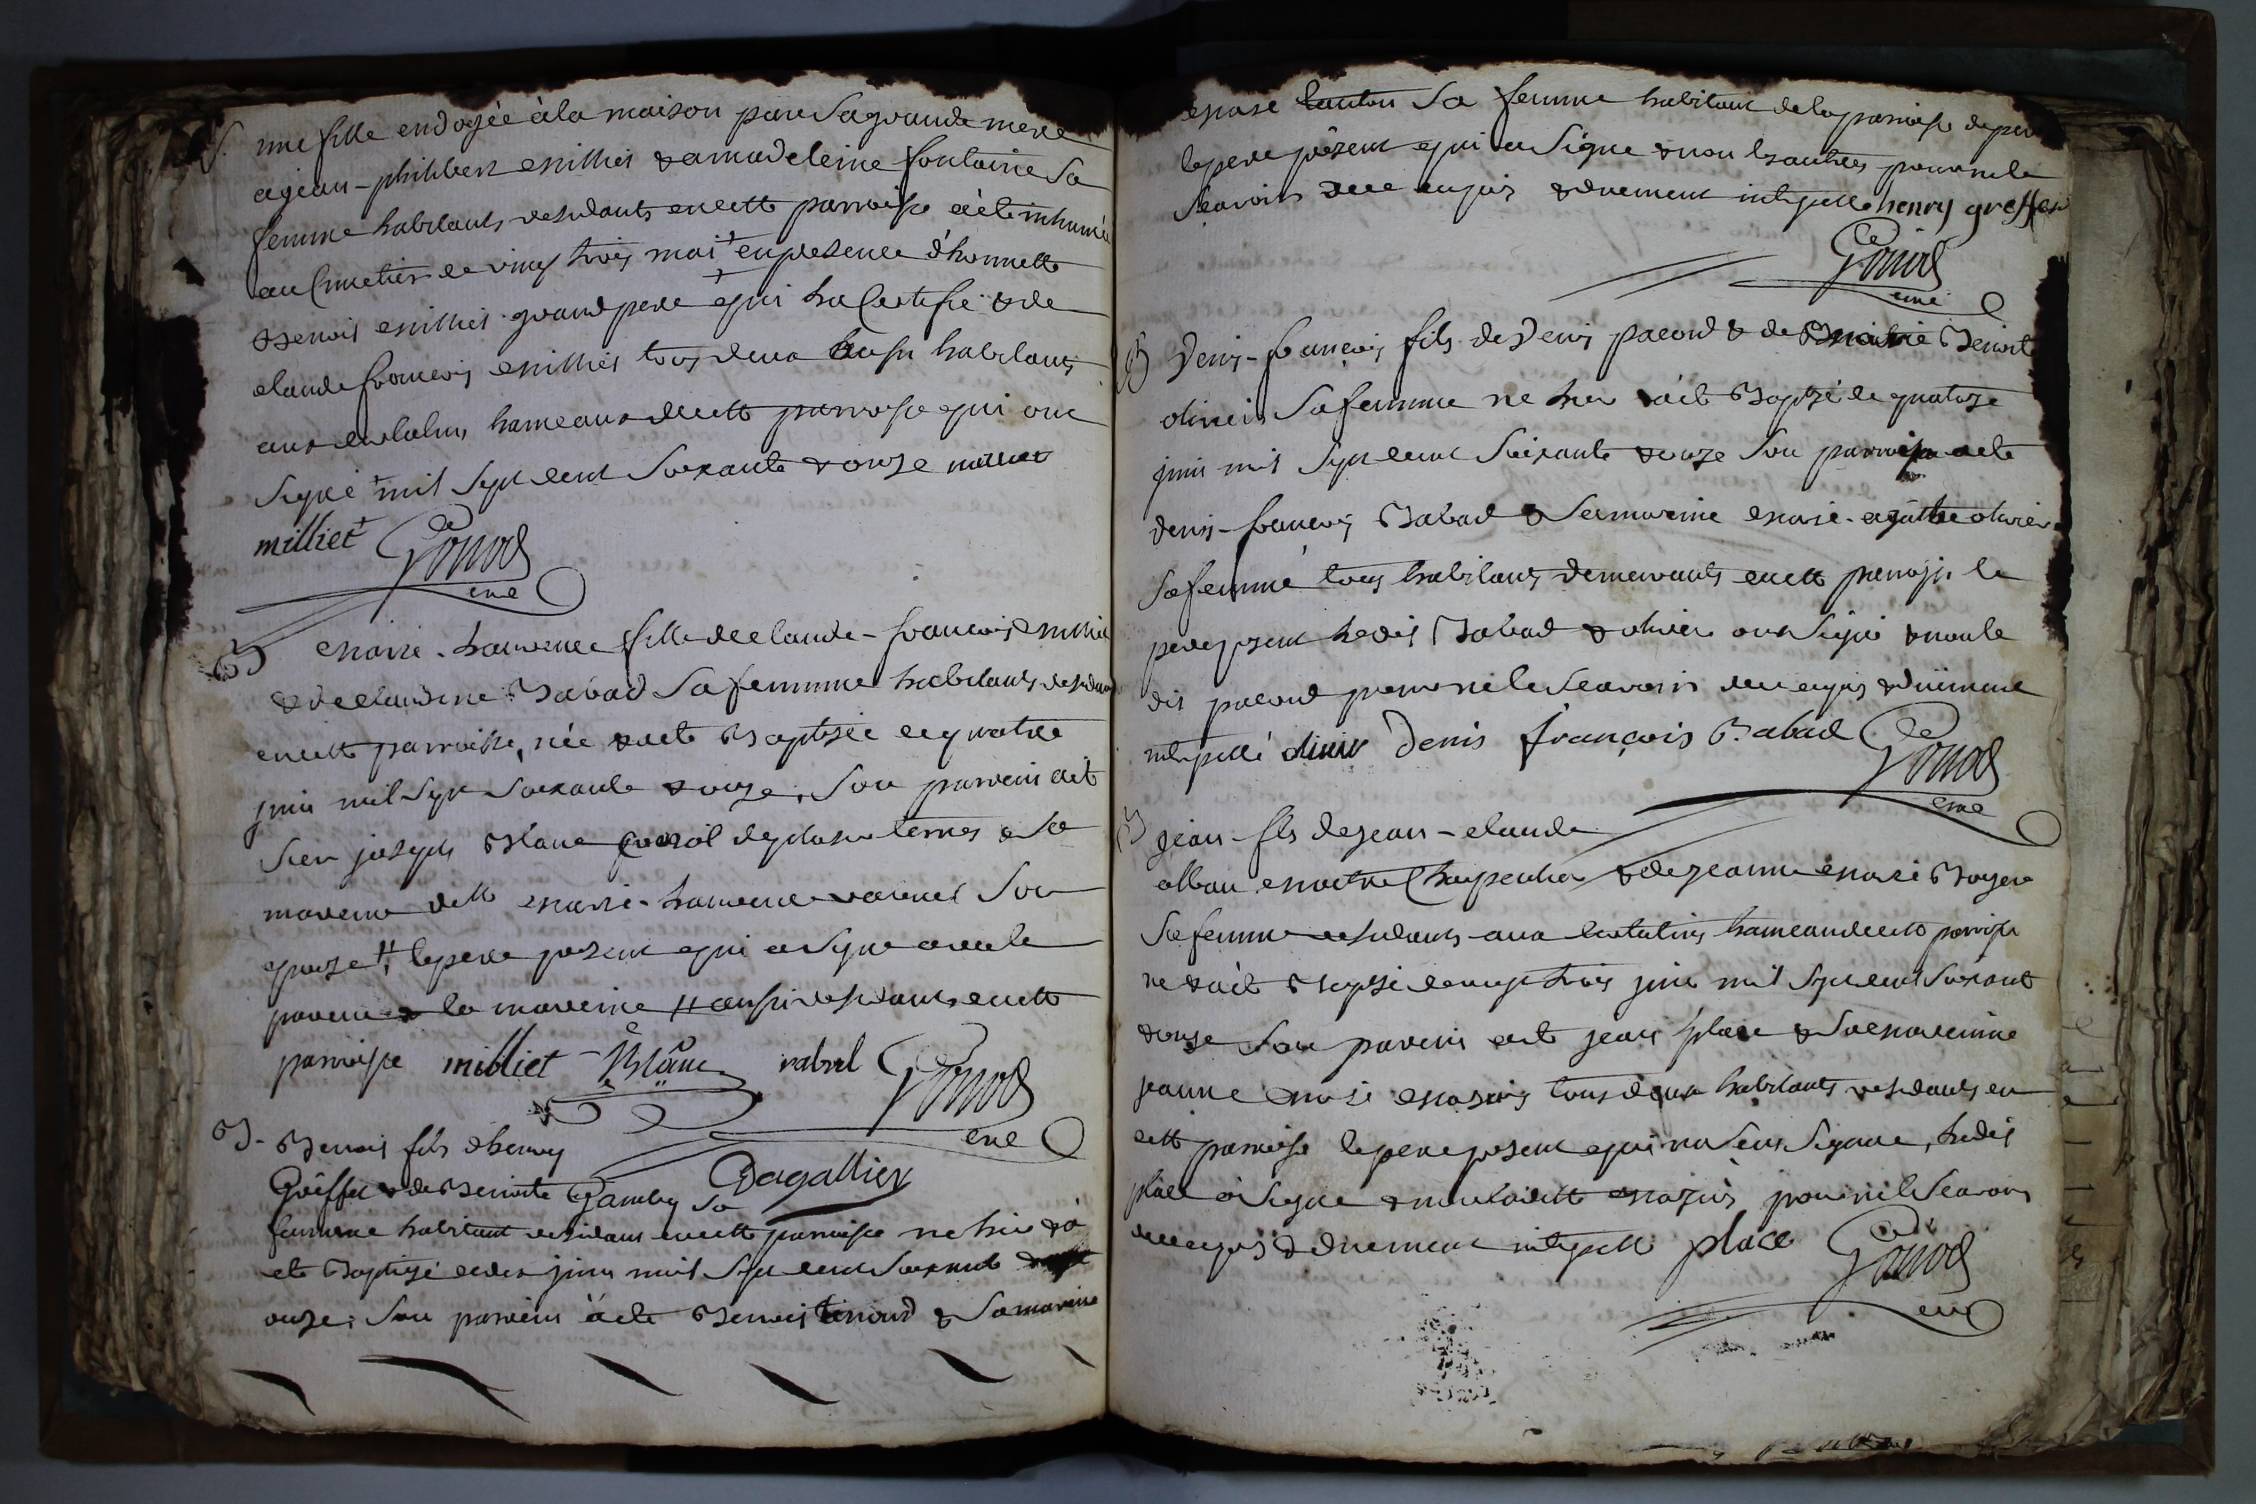 S. une fille endoyée à la maison par sa grande mere
a jean-philibert milliet & a madeleine fontaine sa
femme habitants residants en cette parroisse a été inhumée
au cimetier le vingt trois mai † en presence d'honnette
Benoit milliet grand pere † qui l'a certifié & de
claude françois milliet tous deux aussi habitants
aux hameaux de cette parroisse qui ont
signé † mil sept cent soixante & onze milliet
milliet Gonod
curé
B marie-laurence fille de claude-françois milliet
& de claudine Babad sa femme habitants residants
en cette parroisse, née & a été Baptisée le quatre
juin mil sept soixante & onze, son parrein a été
sieur joseph Blanc & sa
mareine delle marie-laurence son
epouse # le pere présent qui a signé avec le
parrein & la mareine # aussi residants en cette
parroisse milliet Blanc Gonod
curé
B- Benoit fils d'henry
Greffet & de Benoite Gamby sa Dagallier
femme habitant residans en cette parroisse né hier & a
été Baptizé le dix juin mil sept cent soixante
onze, son parrein a été Benoit & sa mareine
marie sa femme habitant de la parroisse de
le pere présent qui a signé & non les autres pour ne le
sçavoir de ce enquis & duement interpellé henry greffet
Gonod
curé
B Denis-françois fils de Denis pacoud & de Benoite
olivier sa femme né hier & a été Baptizé le quatorze
juin mil sept cent soixante & onze son parrein a été
denis-françois Babad & sa mareine marie-agathe olivier
sa femme tous habitants demeurants en cette parroisse le
pere présent lesdits Babad & olivier ont signé & non le
dit pacoud pour ne le sçavoir de ce enquis & duëment
interpellé olivier Denis françois Babad Gonod
curé
B jean-fils de jean-claude
alban maitre charpentier & de jeanne marie Boyer
sa femme residants aux hameau de cette parroisse
né & a été Baptizé le vingt trois juin mil sept cent soixante
& onze son parrein a été jean place & sa mareine
jeanne marie tous deux habitants residants en
cette parroisse le pere présent qui n'a sçeu signer, ledit
place a signé & non ladite pour ne le sçavoir
de ce enquis & duement interpellé place Gonod
curé